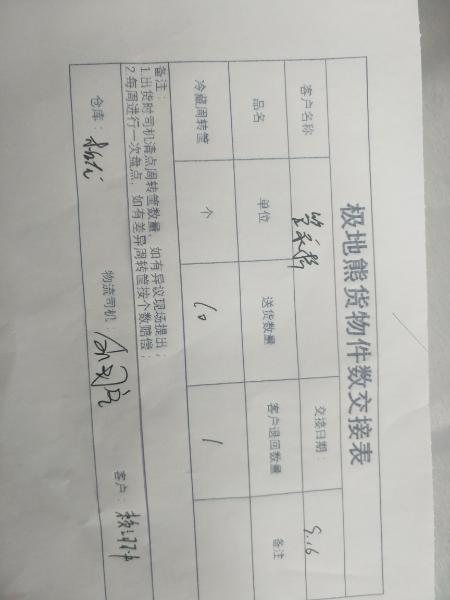 极地熊货物件数交接表
客户名称 交接日期: 9.16
品名 单位 送货数量 客户退回数量 备注
冷藏周转筐 个 60 1
备注:
1.出货时司机清点周转筐数量,如有异议现场提出;
2.每周进行一次盘点,如有差异周转筐按个数赔偿;
仓库: 物流司机: 客户: